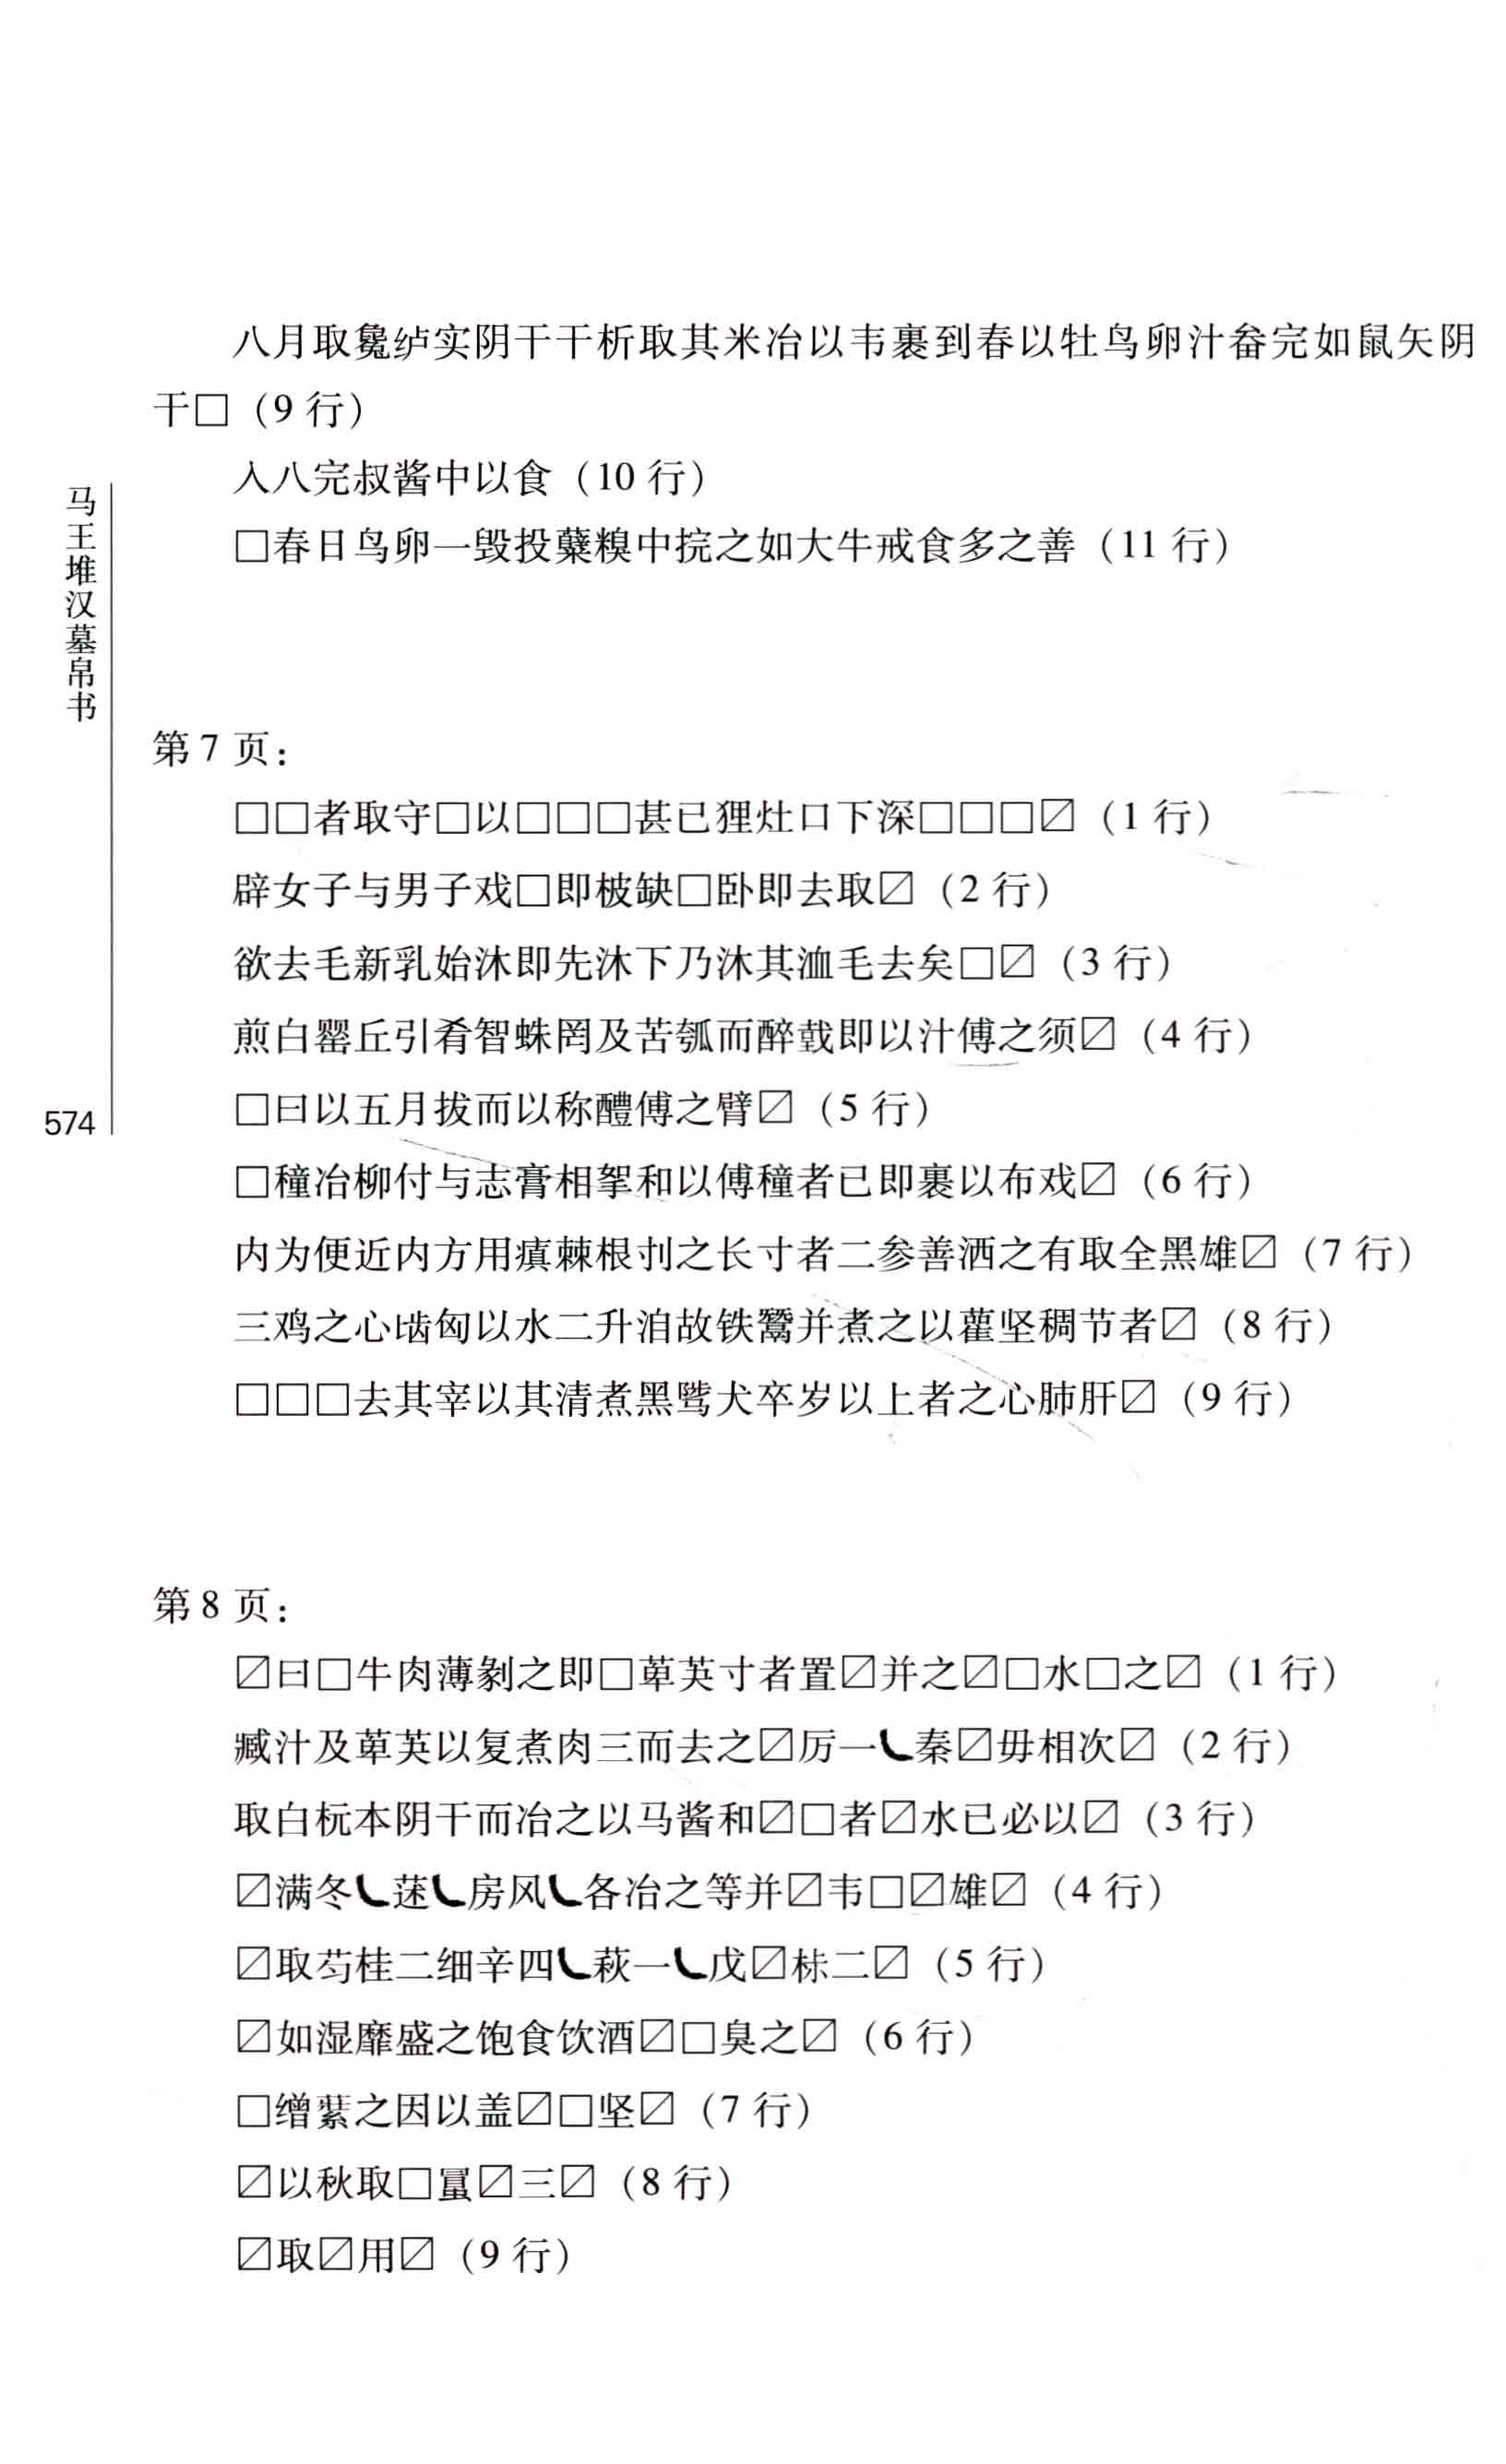 八月取毚纑实阴干干析取其米冶以韦裹到春以牡鸟卵汁畚完如鼠矢阴
干□（9 行）
入八完叔酱中以食（10 行）
□春日鸟卵一毁投蘖糗中捖之如大牛戒食多之善（11 行）
马王堆汉墓帛书
574
第 7 页：
□□者取守□以□□□甚已狸灶口下深□□□〼（1 行）
辟女子与男子戏□即柀缺□卧即去取〼（2 行）
欲去毛新乳始沐即先沐下乃沐其洫毛去矣□〼（3 行）
煎白罂丘引肴智蛛罔及苦瓠而醉㦸即以汁傅之须〼（4 行）
□曰以五月拔而以称醴傅之臂〼（5 行）
□穜冶柳付与志膏相挐和以傅穜者已即裹以布戏〼（6 行）
内为便近内方用瘨棘根刌之长寸者二参善洒之有取全黑雄〼（7 行）
三鸡之心匈以水二升洎故铁鬵并煮之以雚坚稠节者〼（8 行）
□□□去其宰以其清煮黑骘犬卒岁以上者之心肺肝〼（9 行）
第 8 页：
〼曰□牛肉薄剝之即□萆荚寸者置〼并之〼□水□之〼（1 行）
臧汁及萆荚以复煮肉三而去之〼厉一㇄秦〼毋相次〼（2 行）
取白杬本阴干而冶之以马酱和〼□者〼水已必以〼（3 行）
〼满冬㇄蒁㇄房风㇄各冶之等并〼韦□〼雄〼（4 行）
〼取芍桂二细辛四㇄萩一㇄戊〼二〼（5 行）
〼如湿靡盛之饱食饮酒〼□臭之〼（6 行）
□缯蘩之因以盖〼□坚〼（7 行）
〼以秋取□〼三〼（8 行）
〼取〼用〼（9 行）